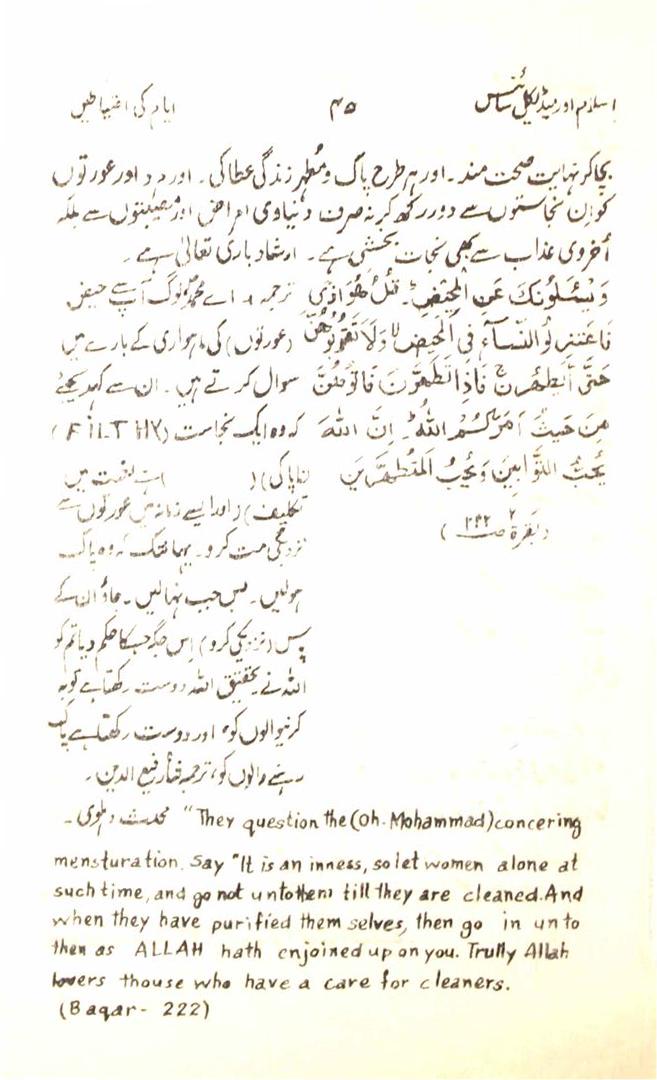 اسلام اور میڈیکل سائنس ۴۵ ایام کی احتیاطیں
بچاکر نہایت صحت مند۔ اور ہر طرح پاک و مُطہر زندگی عطا کی۔ اور مرد اور عورتوں
کو اِن نجاستوں سے دور رکھ کر نہ صرف دنیاوی امراض اور مصیبتوں سے بلکہ
اُخروی عذاب سے بھی نجات بخشی ہے۔ ارشاد باری تعالیٰ ہے۔
وَيَسْئَلُونَكَ عَنِ الْمَحِيْضِ۔ قُلْ هُوَ اَذًى
فَاعْتَزِلُوا النِّسَآءَ فِي الْمَحِيْضِ لا وَلَا تَقْرَبُوْهُنَّ
حَتّٰى يَطْهُرْنَ ج فَاِذَا تَطَهَّرْنَ فَاْتُوْهُنَّ
مِنَ حَيْثُ اَمَرَكُمُ اللّٰهُ۔ اِنَّ اللّٰهَ
يُحِبُّ التَّوَّابِيْنَ وَيُحِبُّ الْمُتَطَهِّرِيْنَ
ترجمہ اے محمدؐ لوگ آپ سے حیض
(عورتوں) کی ماہواری کے بارے میں
سوال کرتے ہیں۔ ان سے کہہ دیجئے
کہ وہ ایک نجاست (FiLTHY)
(ناپاکی)
تکلیف) (اور ایسے زمانہ میں عورتوں سے
نزدیکی مت کرو۔ یہانتک کہ وہ پاک
ہولیں۔ بس جب نہالیں۔ جاؤ ان کے
پس (نزدیکی کرو) اِس جگہ جسکا حکم دیا تم کو
اللہ نے بحقیق اللہ دوست رکھتا ہے توبہ
کرنیوالوں کو، اور دوست رکھتا ہے پاک
رہنے والوں کو، ترجمہ شاہ رفیع الدین۔
محدث دہلوی۔ "They question the (oh. Mohammad) concering
mensturation. Say "It is an inness, so let women alone at
such time, and go not untothem till they are cleaned. And
when they have purified them selves, then go in unto
then as ALLAH hath enjoined up on you. Trully Allah
lovers thouse who have a care for cleaners.
(Baqar- 222)